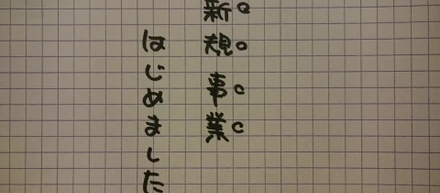 新規事業
はじめました